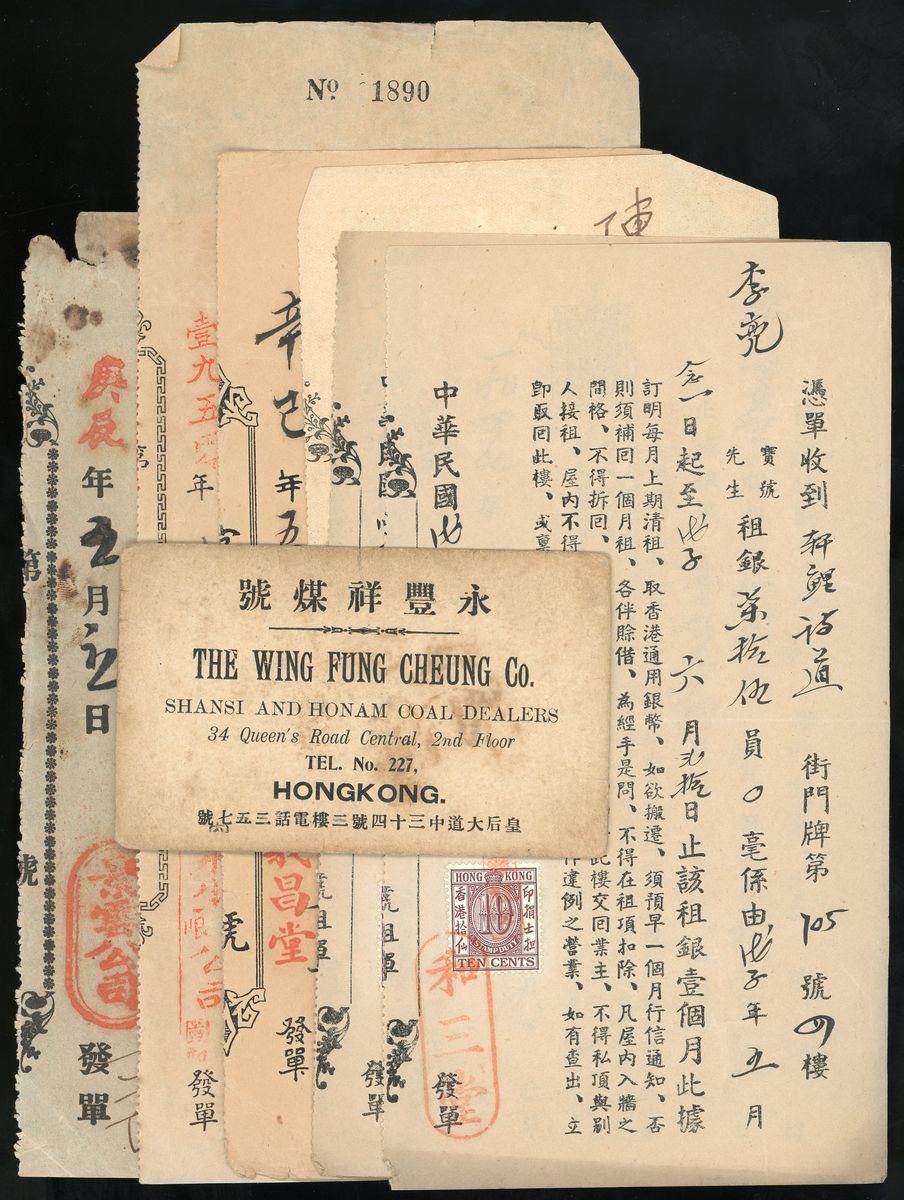 Nº 1890
陳
李亮
憑單收到軒鯉詩道 街門牌第105號四樓
寶號
先生
租銀柒拾伍員0毫係由戊子年五月
念一日起至戊子 六 月弍拾日止該租銀壹個月此據
訂明每月上期清租、取香港通用銀幣、如欲搬遷、須預早一個月行信通知、否
則須補回一個月租、各伴賒借、為經手是問、不得在租項扣除、凡屋內入牆之
間格、不得拆回、 此樓交回業主、不得私頂與別
人接租、屋內不得 作違例之營業、如有查出、立
卽取回此樓、或
中華民國戊
發單
和三堂
HONG KONG
香港拾仙
印捐士担
10
STAMP DUTY
TEN CENTS
號租單
發單
辛巳年五
昌堂
號
發單
壹九五 年
第
發單
庚辰年五月 日
第
號
景雲公司
發單
號煤祥豐永
THE WING FUNG CHEUNG Co.
SHANSI AND HONAM COAL DEALERS
34 Queen's Road Central, 2nd Floor
TEL. No. 227,
HONGKONG.
號七五三話電樓三號四十三中道大后皇